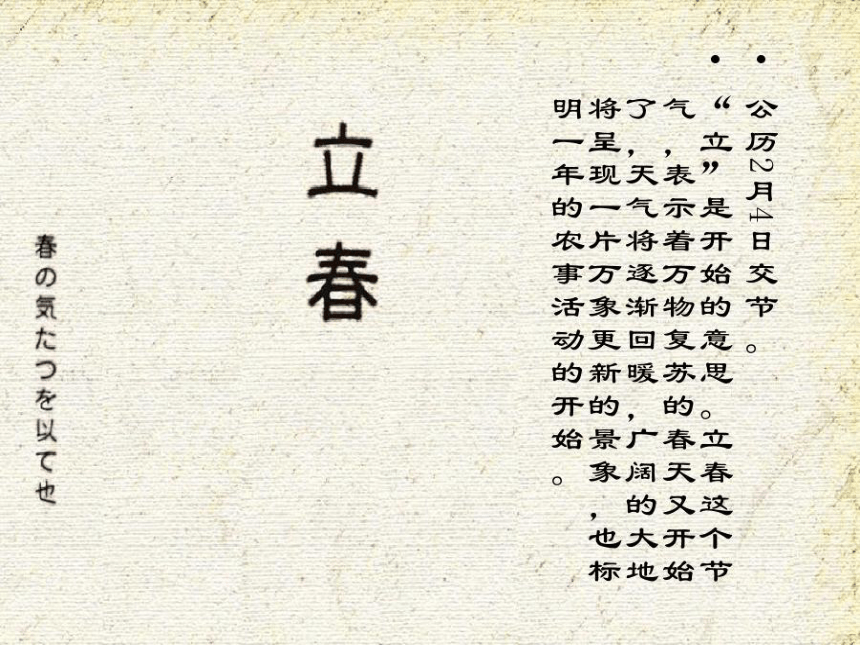 • 公历2月4日交节。
• “立”是开始的意思。立春这个节
气，表示着万物复苏的春天又开始
了，天气将逐渐回暖，广阔的大地
将呈现一片万象更新的景象，也标
明一年的农事活动的开始。
立春
春の気たつを以て也